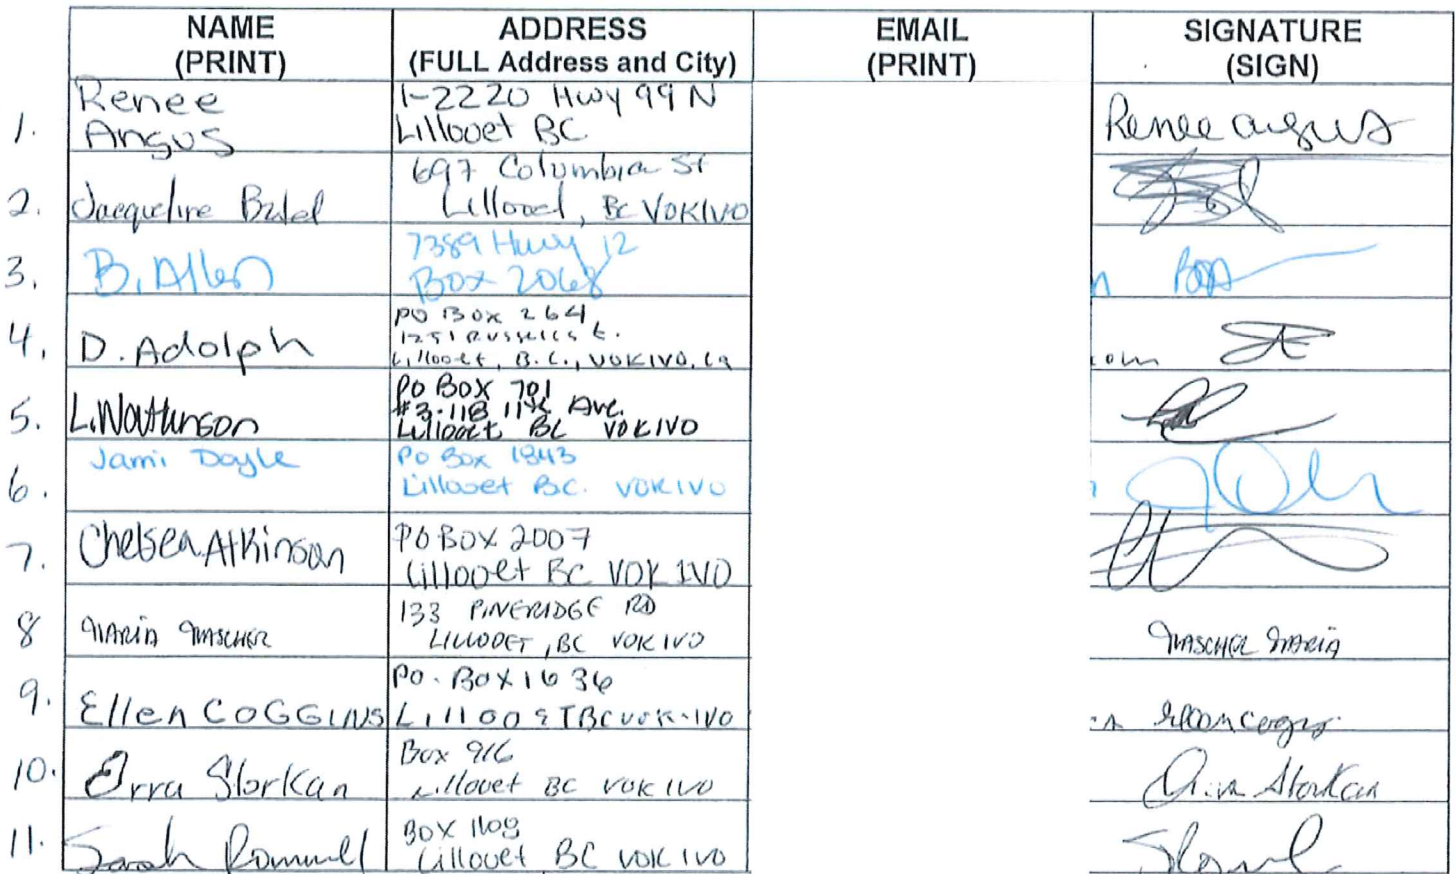 NAME (PRINT) ADDRESS (FULL Address and City) EMAIL (PRINT) SIGNATURE (SIGN)
1. Renee Angus 1-2220 Hwy 99 N Lillooet BC Renee Angus
2. Jacqueline 697 Columbia St Lillooet, BC V0K1V0
3. B. Allen 7389 Hwy 12 Box 2068
4. D. Adolph PO Box 264, 1251 Russell St. Lillooet, B.C., V0K1V0, Ca com
5. L. Watkinson PO Box 701 #3-118 11th Ave. Lillooet BC V0K1V0
6. Jami Doyle PO Box 1843 Lillooet BC. V0K1V0
7. Chelsea Atkinson PO BOX 2007 Lillooet BC V0K 1V0
8 MARIA MASCHER 133 PINERIDGE RD LILLOOET, BC V0K1V0 MASCHER MARIA
9. Ellen COGGINS PO. BOX 1636 Lillooet BC V0K-1V0 Ellen Coggins
10. Orra Storkan Box 916 Lillooet BC V0K 1V0 Orra Storkan
11. Sarah Box 1109 Lillooet BC V0K 1V0